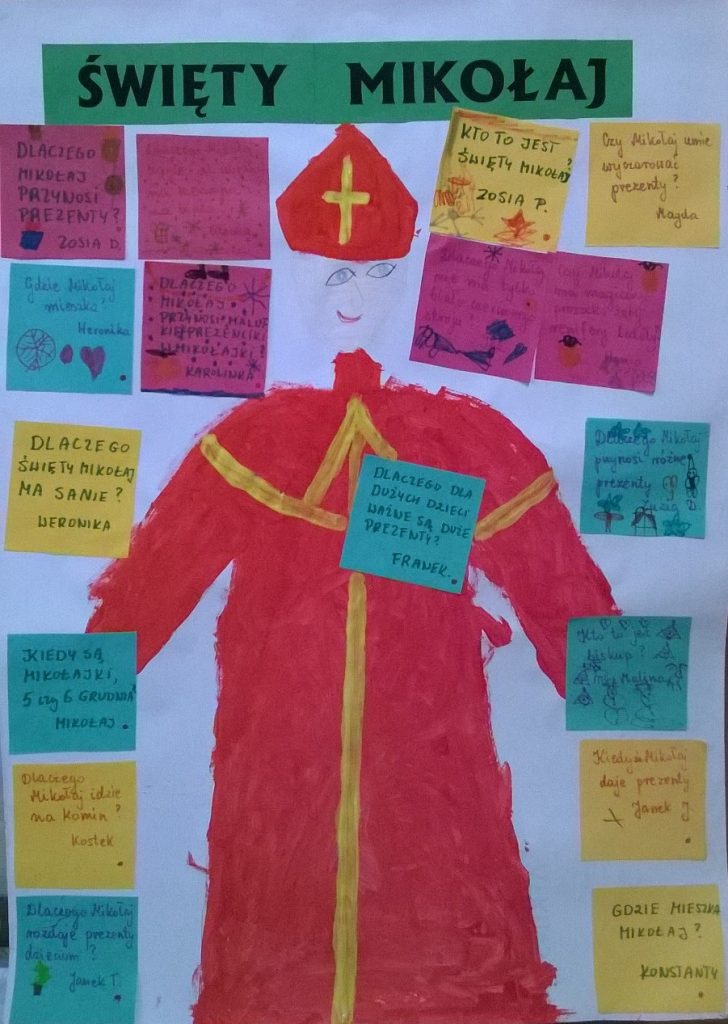 ŚWIĘTY MIKOŁAJ
DLACZEGO
MIKOŁAJ
PRZYNOSI
PREZENTY?
ZOSIA D.
KTO TO JEST
ŚWIĘTY MIKOŁAJ?
ZOSIA P.
Czy Mikołaj umie
wyczarować
prezenty?
Magda
Gdzie Mikołaj
mieszka?
Weronika
DLACZEGO
MIKOŁAJ
PRZYNOSI MALUT
KIE PREZENCIKI
W MIKOŁAJKI?
KAROLINKA
Dlaczego Mikołaj
nie ma tylko
biało czerwonego
stroju
Czy Mikołaj
ma magiczny
proszek, żeby
renifery latały?
DLACZEGO
ŚWIĘTY MIKOŁAJ
MA SANIE?
WERONIKA
DLACZEGO DLA
DUŻYCH DZIECI
WAŻNE SĄ DUŻE
PREZENTY?
FRANEK.
Dlaczego Mikołaj
przynosi różne
prezenty
Zuzia B.
KIEDY SĄ
MIKOŁAJKI,
5 czy 6 GRUDNIA?
MIKOŁAJ
Kto to jest
biskup?
Malina
Dlaczego
Mikołaj idzie
na komin?
Kostek
Kiedy Mikołaj
daje prezenty
Janek J.
Dlaczego Mikołaj
rozdaje prezenty
dzieciom?
Janek T.
GDZIE MIESZKA
MIKOŁAJ?
KONSTANTY